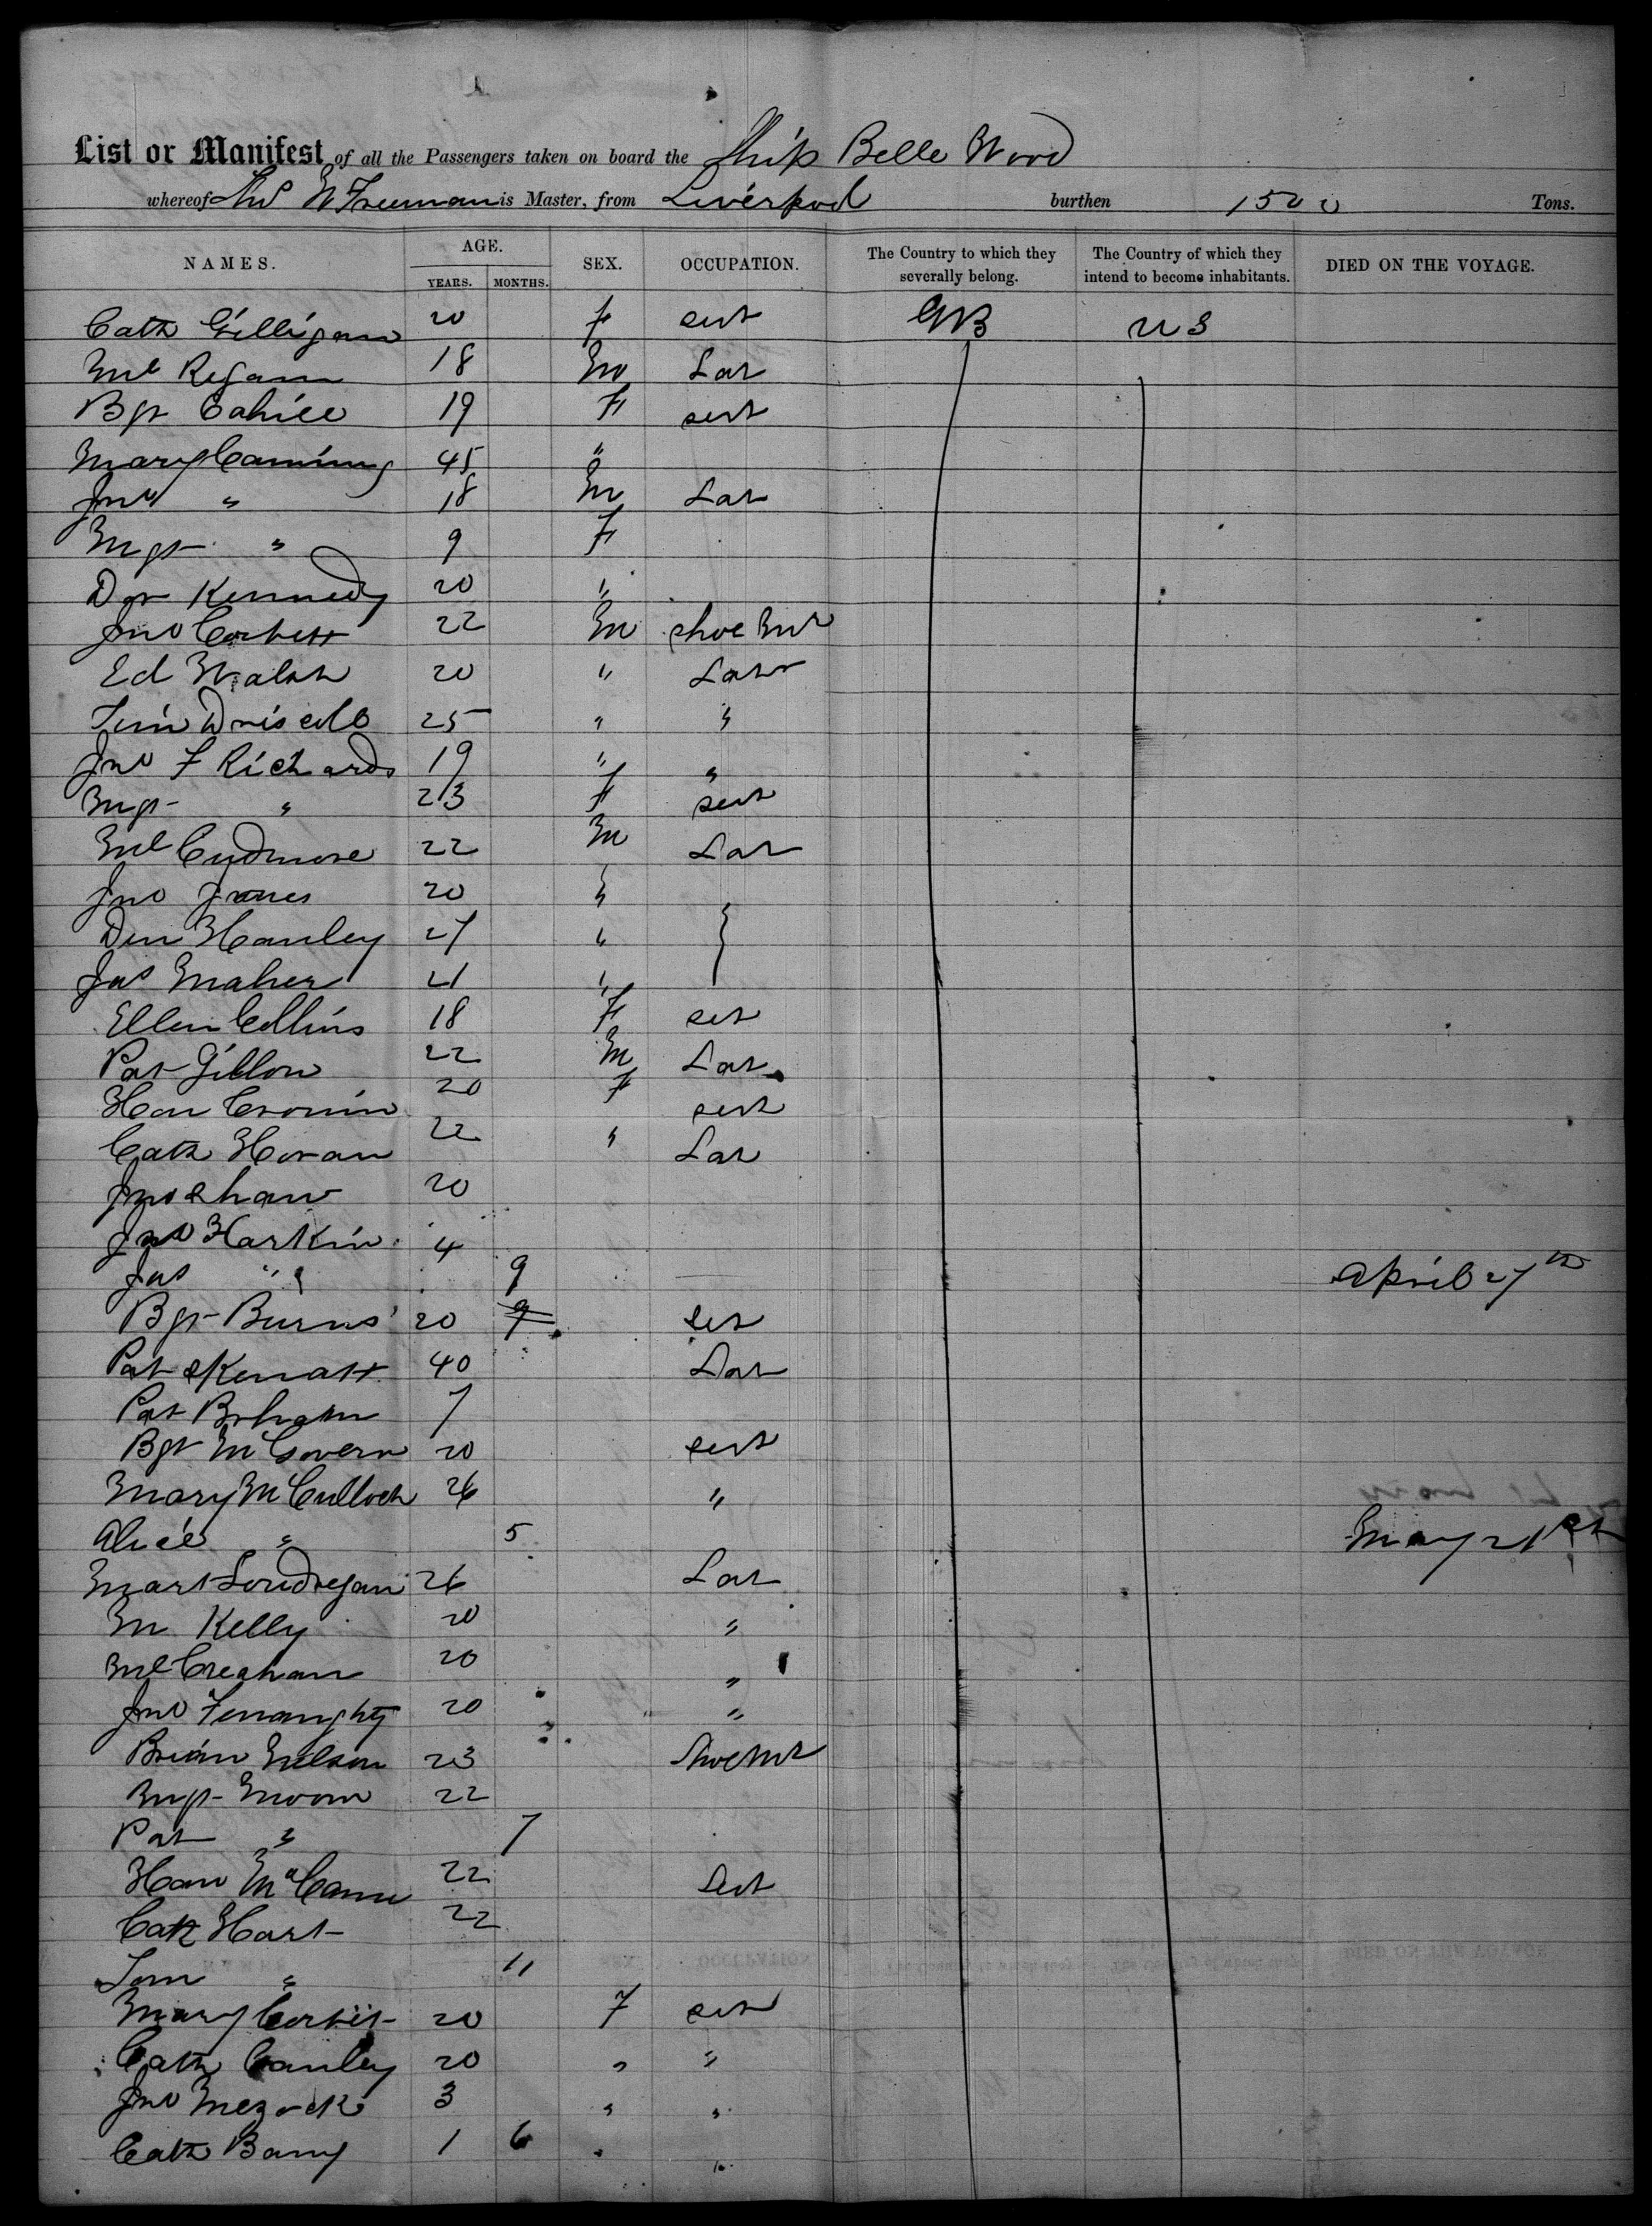 List or Manifest of all the Passengers taken on board the Ship Belle Wood
whereof Thos W Freeman is Master, from Liverpool burthen 1500 Tons.
NAMES. AGE. YEARS. MONTHS. SEX. OCCUPATION. The Country to which they severally belong. The Country of which they intend to become inhabitants. DIED ON THE VOYAGE.
Cath Gilligan 20 F Servt GB US
Ml Regan 18 M Lab
Bgt Cahill 19 F Servt
Mary Canning 45 "
Jno " 18 M Lab
Mgt " 9 F
Kennedy 20 "
Jno Corbett 22 M Shoe Mkr
Ed Walsh 20 " Labr
Tim Driscoll 25 " "
Jno F Richards 19 " "
Mgt " 23 F Servt
Ml Cudmore 22 M Lab
Jno Jones 20 "
Den Hanley 27 "
Jas Maher 21 "
Ellen Collins 18 F Servt
Pat Gillon 22 M Lab
Han Cronin 20 F Servt
Cath Horan 22 " Lab
Jno Shaw 20
Jno Harkin 4
Jas " 9 April 27th
Bgt Burns 20 9 Servt
Pat 40 Lab
Pat 7
Bgt McGovern 20 Servt
Mary McCulloch 26 "
Alice " 5 May 21st
Mart Londregan 26 Lab
M Kelly 20 "
Ml Creahan 20 "
Jno Fenaughty 20 "
Brian 23 Shoe Mkr
Mgt Moore 22
Pat " 7
Han McCann 22 Servt
Cath Hart 22
Tom " 11
Mary Corbit 20 F Servt
Cath Canley 20 " "
Jno 3 " "
Cath Barry 1 6 " "